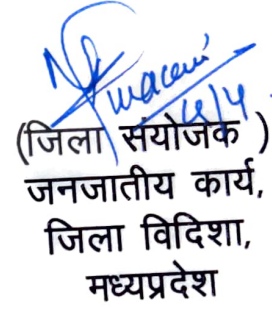 (जिला संयोजक )
जनजातीय कार्य,
जिला विदिशा,
मध्यप्रदेश